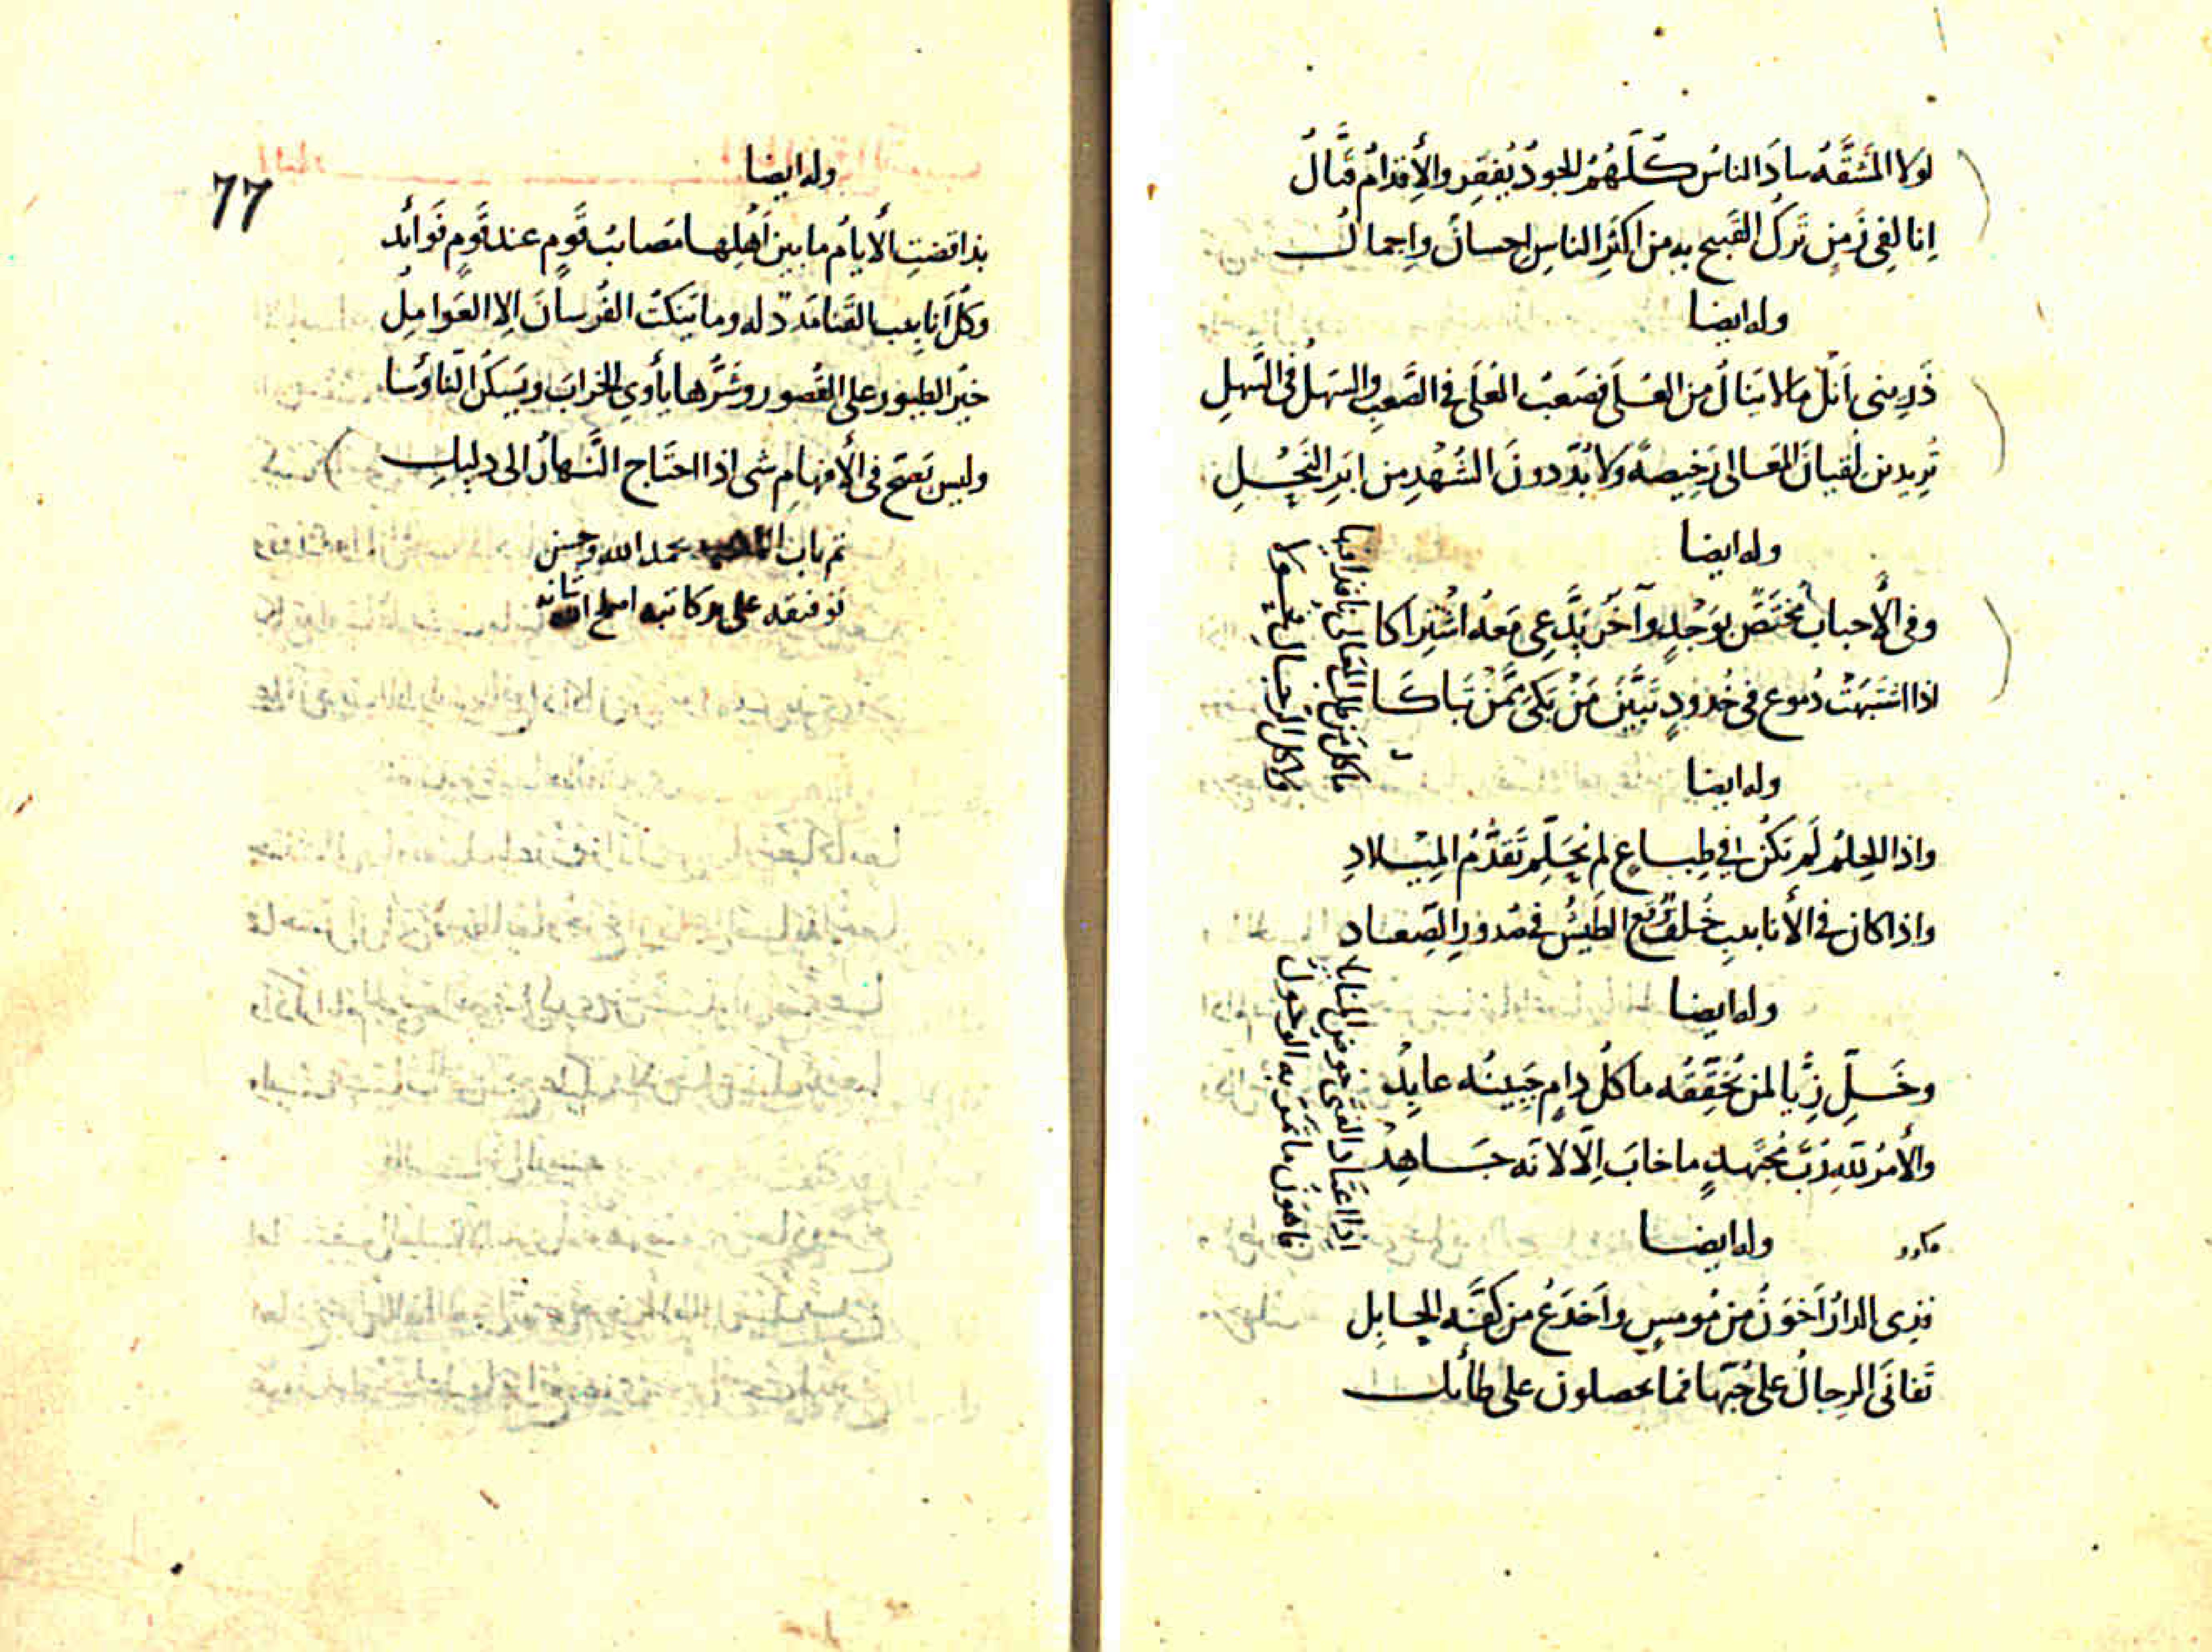 لولا المَشَقَّةُ سادَ الناسُ كُلُّهُمُ الجودُ يُفقِر والأِقدامُ قتَّالُ
اِنا لفِى زَمنٍ تَركُ القَبيح بهِ من اكثَرِ الناسِ احسانٌ واِجمالُ
وله ايضا
ذَرِينى اَنَلْ مَا لا يَنالُ من العُلَى فصَعبُ العُلَى فى الصَّعبِ والسَهلُ فى السَّهلِ
تُريدِين لُقيانَ المَعَالى رَخِيصةً وَلا بُدَّ دونَ الشُهْدِ من ابَرِ النَحْلِ
وله ايضا
وفى الأَحباب مُختَصٌّ بوَجْدٍ وآخَرُ يَدَّعِى مَعَهُ اشْتِراكا
اذا اشتَبَهَتْ دُموع فى خُدودٍ تَبَيَّنَ مَنْ بَكَى مِمَّنْ تَباكَا
ما كل من طلب المعالى نافذا فيها
ولا كل الرجال فحولا
وله ايضا
واذا الحِلمُ لَم تكُن فى طِباعٍ لم يُحَلِّم تَقَدُّمُ المِيْلادِ
واذا كان فى الأنابيبِ خُلفٌ وَقع الطَيشُ فى صُدورِ الصِّعاد
وله ايضا
وخَلِّ زِيًّا لمن نُحَقِّقُه ما كلُ دامٍ جَبِينُه عابِدُ
والأمرُ للهِ رُبَّ مُجتَهدٍ ما خابَ اِلّا لانّه جَاهِدُ
اذا اعتاد الفتى خوض المنايا
فاهونُ ما تَمُرّ به الوحول
مكرر
وله ايضا
فذِى الدارُ اَخوَنُ من مُومسٍ واَخدَعُ من كفّه الحابِل
تَفانَى الرِجالُ على حُبّها فما يحصلون على طائل
77
وله ايضا
بذا قضتِ الأيامُ ما بين اَهْلِها مَصائبُ قَومٍ عند قَومٍ فَوائِدُ
وكلُ اَنابِيب القَنا مَدد له وما يَنكتُ الفُرسانَ اِلا العَوامِلُ
خيرُ الطيور على القُصور وشَرُّها يأوِى الخرابَ ويَسكُن النّاوُسا
وليس يَصِحّ فى الأَفهامِ شى اذا احتَاج النَّهارُ الى دليلِ
تم باب بحمد الله وحسن
توفيقه على يد كاتبه اصلح الله شانه